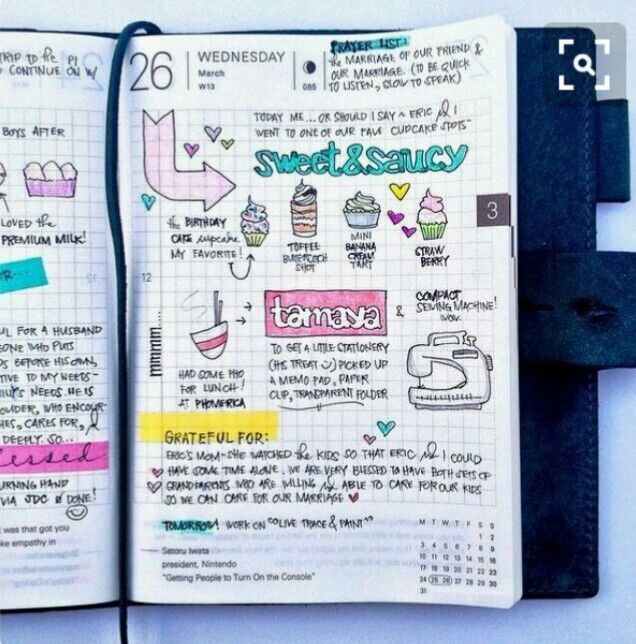 TRIP to the PI
CONTINUE ON W/
BOYS AFTER
LOVED the
PREMIUM MILK!
OR...
FUL FOR A HUSBAND
EONE WHO PUTS
DS BEFORE HIS OWN,
TIVE TO MY NEEDS-
ILY'S NEEDS. HE IS
OULDER, WHO ENCOUR-
HES, CARES FOR, &
DEEPLY. SO...
lessed
URNING HAND
VIA JDC is DONE!
t was that got you
ke empathy in
26
WEDNESDAY
March
W13
085
PRAYER LIST:
the MARRIAGE OF OUR FRIEND &
OUR MARRIAGE. (TO BE QUICK
TO LISTEN, SLOW TO SPEAK)
TODAY ME... OR SHOULD I SAY ~ ERIC & I
WENT TO ONE OF OUR FAVE CUPCAKE SPOTS~
sweet&saucy
3
the BIRTHDAY
CAKE cupcake
MY FAVORITE!
TOFFEE
BUTTERSCOTCH
SHOT
MINI
BANANA
CREAM
TART
STRAW
BERRY
12
mmmm....
HAD SOME PHO
FOR LUNCH!
AT PHOMERICA
tamaya
&
COMPACT
SEWING MACHINE!
WOW.
TO GET A LITTLE STATIONERY
(HIS TREAT :) PICKED UP
A MEMO PAD, PAPER
CLIP, TRANSPARENT FOLDER
GRATEFUL FOR:
ERIC'S MOM~SHE WATCHED the KIDS SO THAT ERIC & I COULD
HAVE SOME TIME ALONE. WE ARE VERY BLESSED TO HAVE BOTH SETS OF
GRANDPARENTS WHO ARE WILLING & ABLE TO CARE FOR OUR KIDS
SO WE CAN CARE FOR OUR MARRIAGE
TOMORROW: WORK ON "LIVE TRACE & PAINT"
Satoru Iwata
president, Nintendo
"Getting People to Turn On the Console"
M T W T F S S
1 2
3 4 5 6 7 8 9
10 11 12 13 14 15 16
17 18 19 20 21 22 23
24 25 26 27 28 29 30
31